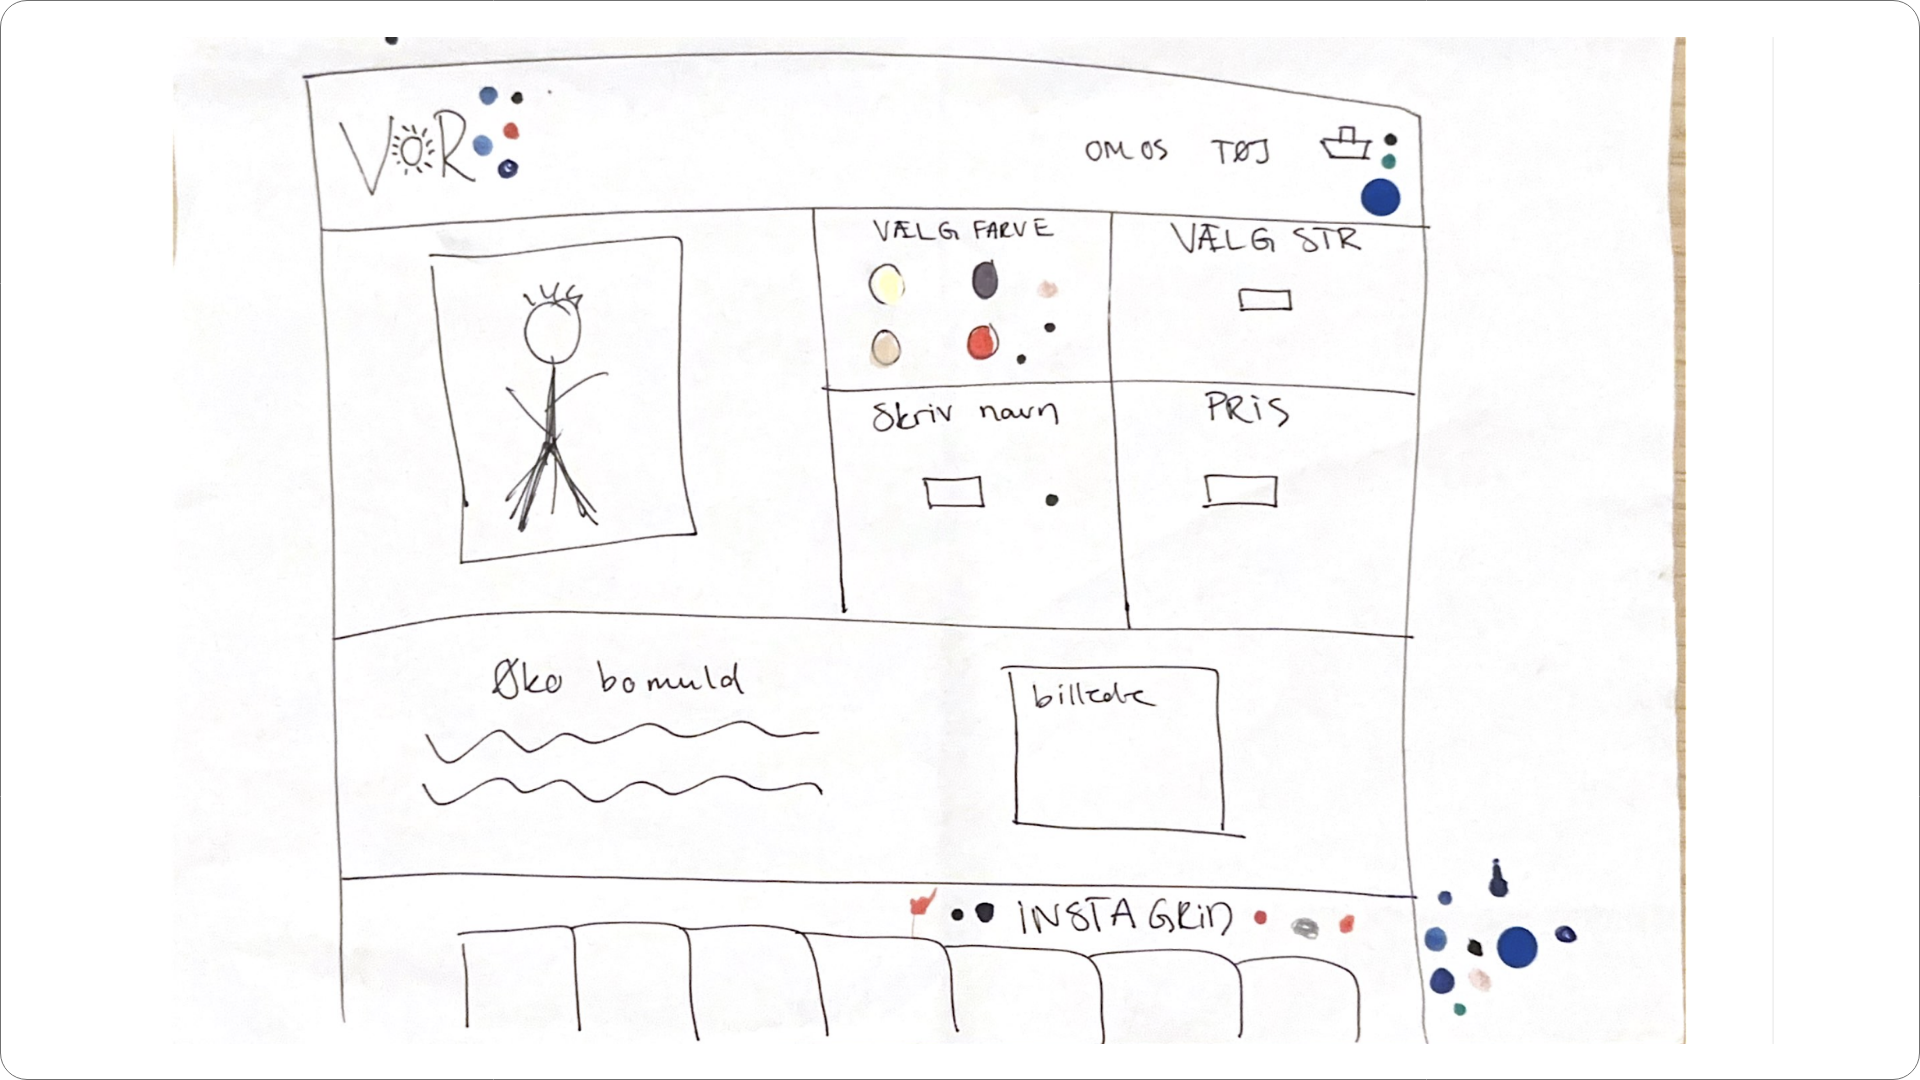 VOR
OM OS TØJ
VÆLG FARVE
VÆLG STR
Skriv navn
PRiS
Øko bomuld
billede
iNSTA GRiD